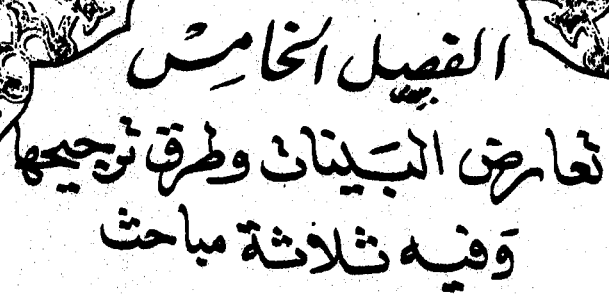 الفصل الخامس
تعارض البينات وطرق ترجيحها
وَفيه ثلاثة مباحث